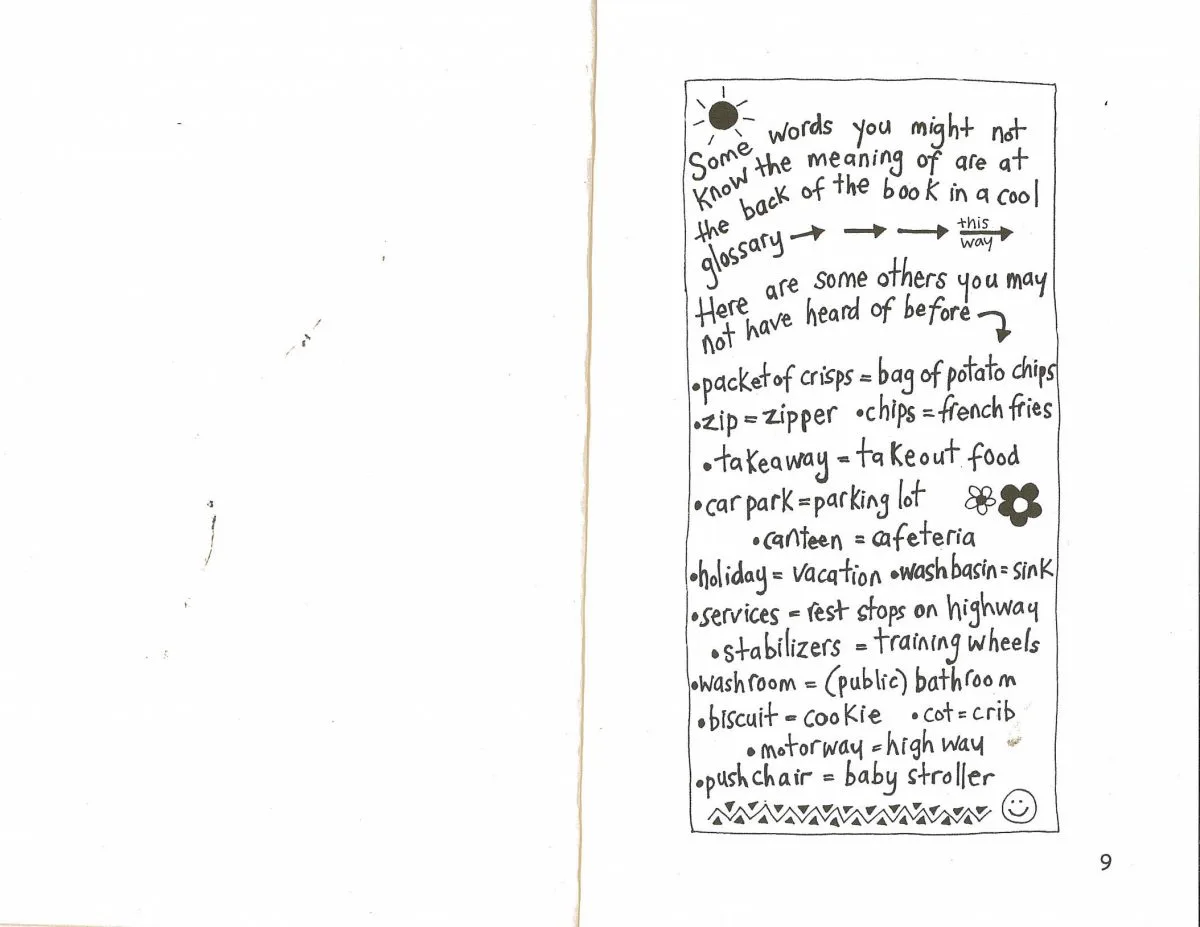 Some words you might not
know the meaning of are at
the back of the book in a cool
glossary this
way
Here are some others you may
not have heard of before
•packet of crisps = bag of potato chips
•zip = zipper •chips = french fries
•takeaway = takeout food
•car park = parking lot
•canteen = cafeteria
•holiday = vacation •wash basin = sink
•services = rest stops on highway
•stabilizers = training wheels
•washroom = (public) bathroom
•biscuit = cookie •cot = crib
•motorway = high way
•push chair = baby stroller
9